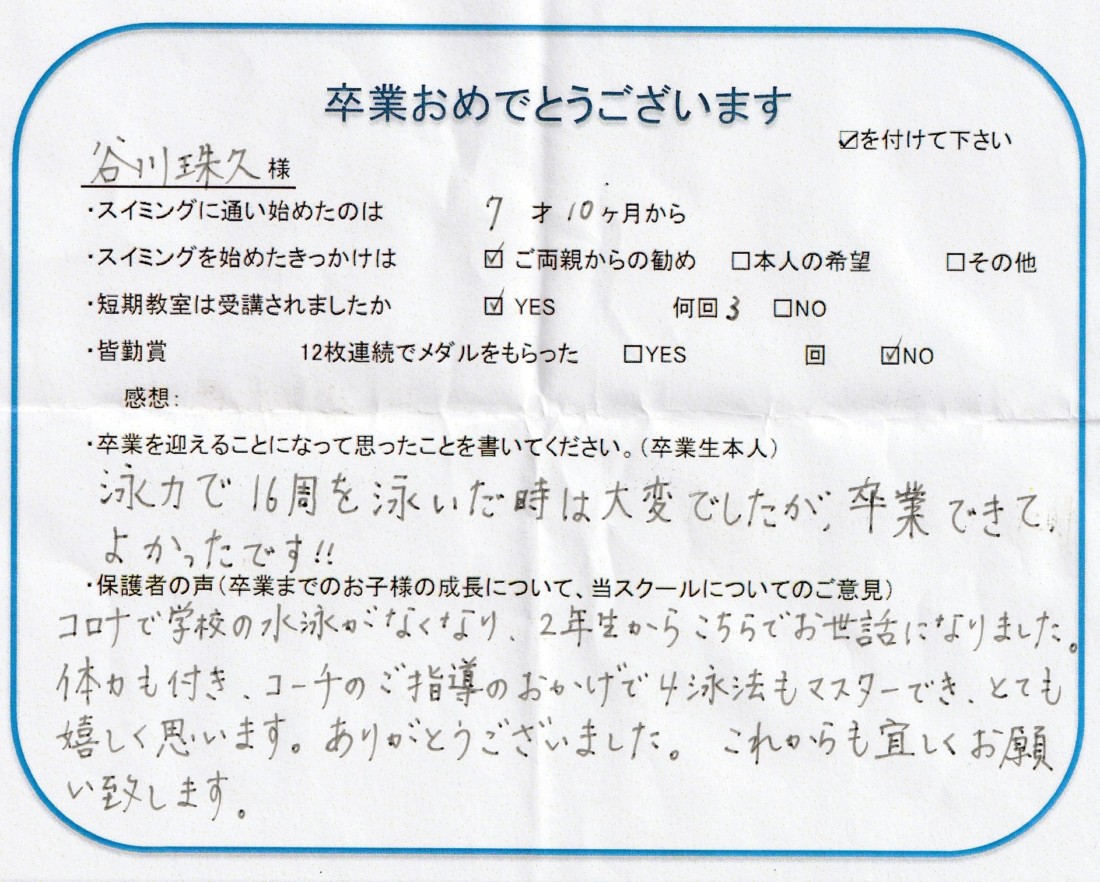 卒業おめでとうございます
☑を付けて下さい
谷川珠久様
・スイミングに通い始めたのは 7 才 10ヶ月から
・スイミングを始めたきっかけは ☑ ご両親からの勧め □本人の希望 □その他
・短期教室は受講されましたか ☑ YES 何回 3 □NO
・皆勤賞 12枚連続でメダルをもらった □YES 回 ☑NO
感想:
・卒業を迎えることになって思ったことを書いてください。(卒業生本人)
泳力で16周を泳いだ時は大変でしたが、卒業できて、
よかったです!!
・保護者の声(卒業までのお子様の成長について、当スクールについてのご意見)
コロナで学校の水泳がなくなり、2年生からこちらでお世話になりました。
体力も付き、コーチのご指導のおかげで4泳法もマスターでき、とても
嬉しく思います。ありがとうございました。 これからも宜しくお願
い致します。